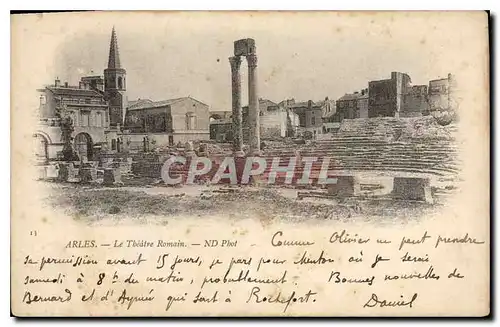 CPARAMA
13
ARLES. — Le Théâtre Romain. — ND Phot
Comme Olivier ne peut prendre
sa permission avant 15 jours, je pars pour Menton où je serai
samedi à 8h du matin, probablement. Bonnes nouvelles de
Bernard et d' qui sert à Rochefort.
Daniel